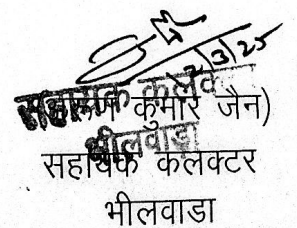 21/3/25
सहायक कलक्टर
कुमार जैन)
भीलवाडा
सहायक कलक्टर
भीलवाडा